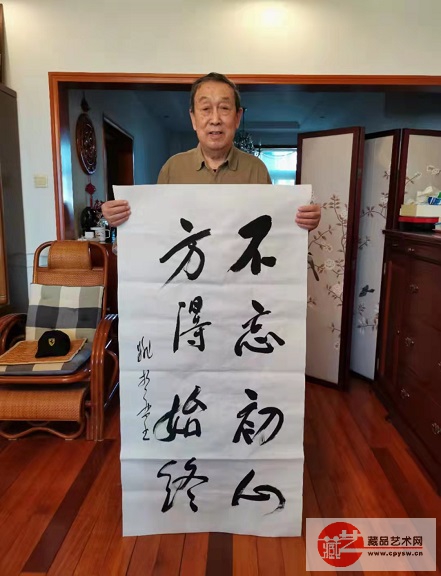 不忘初心
方得始终
藏品艺术网
www.cpysw.cn